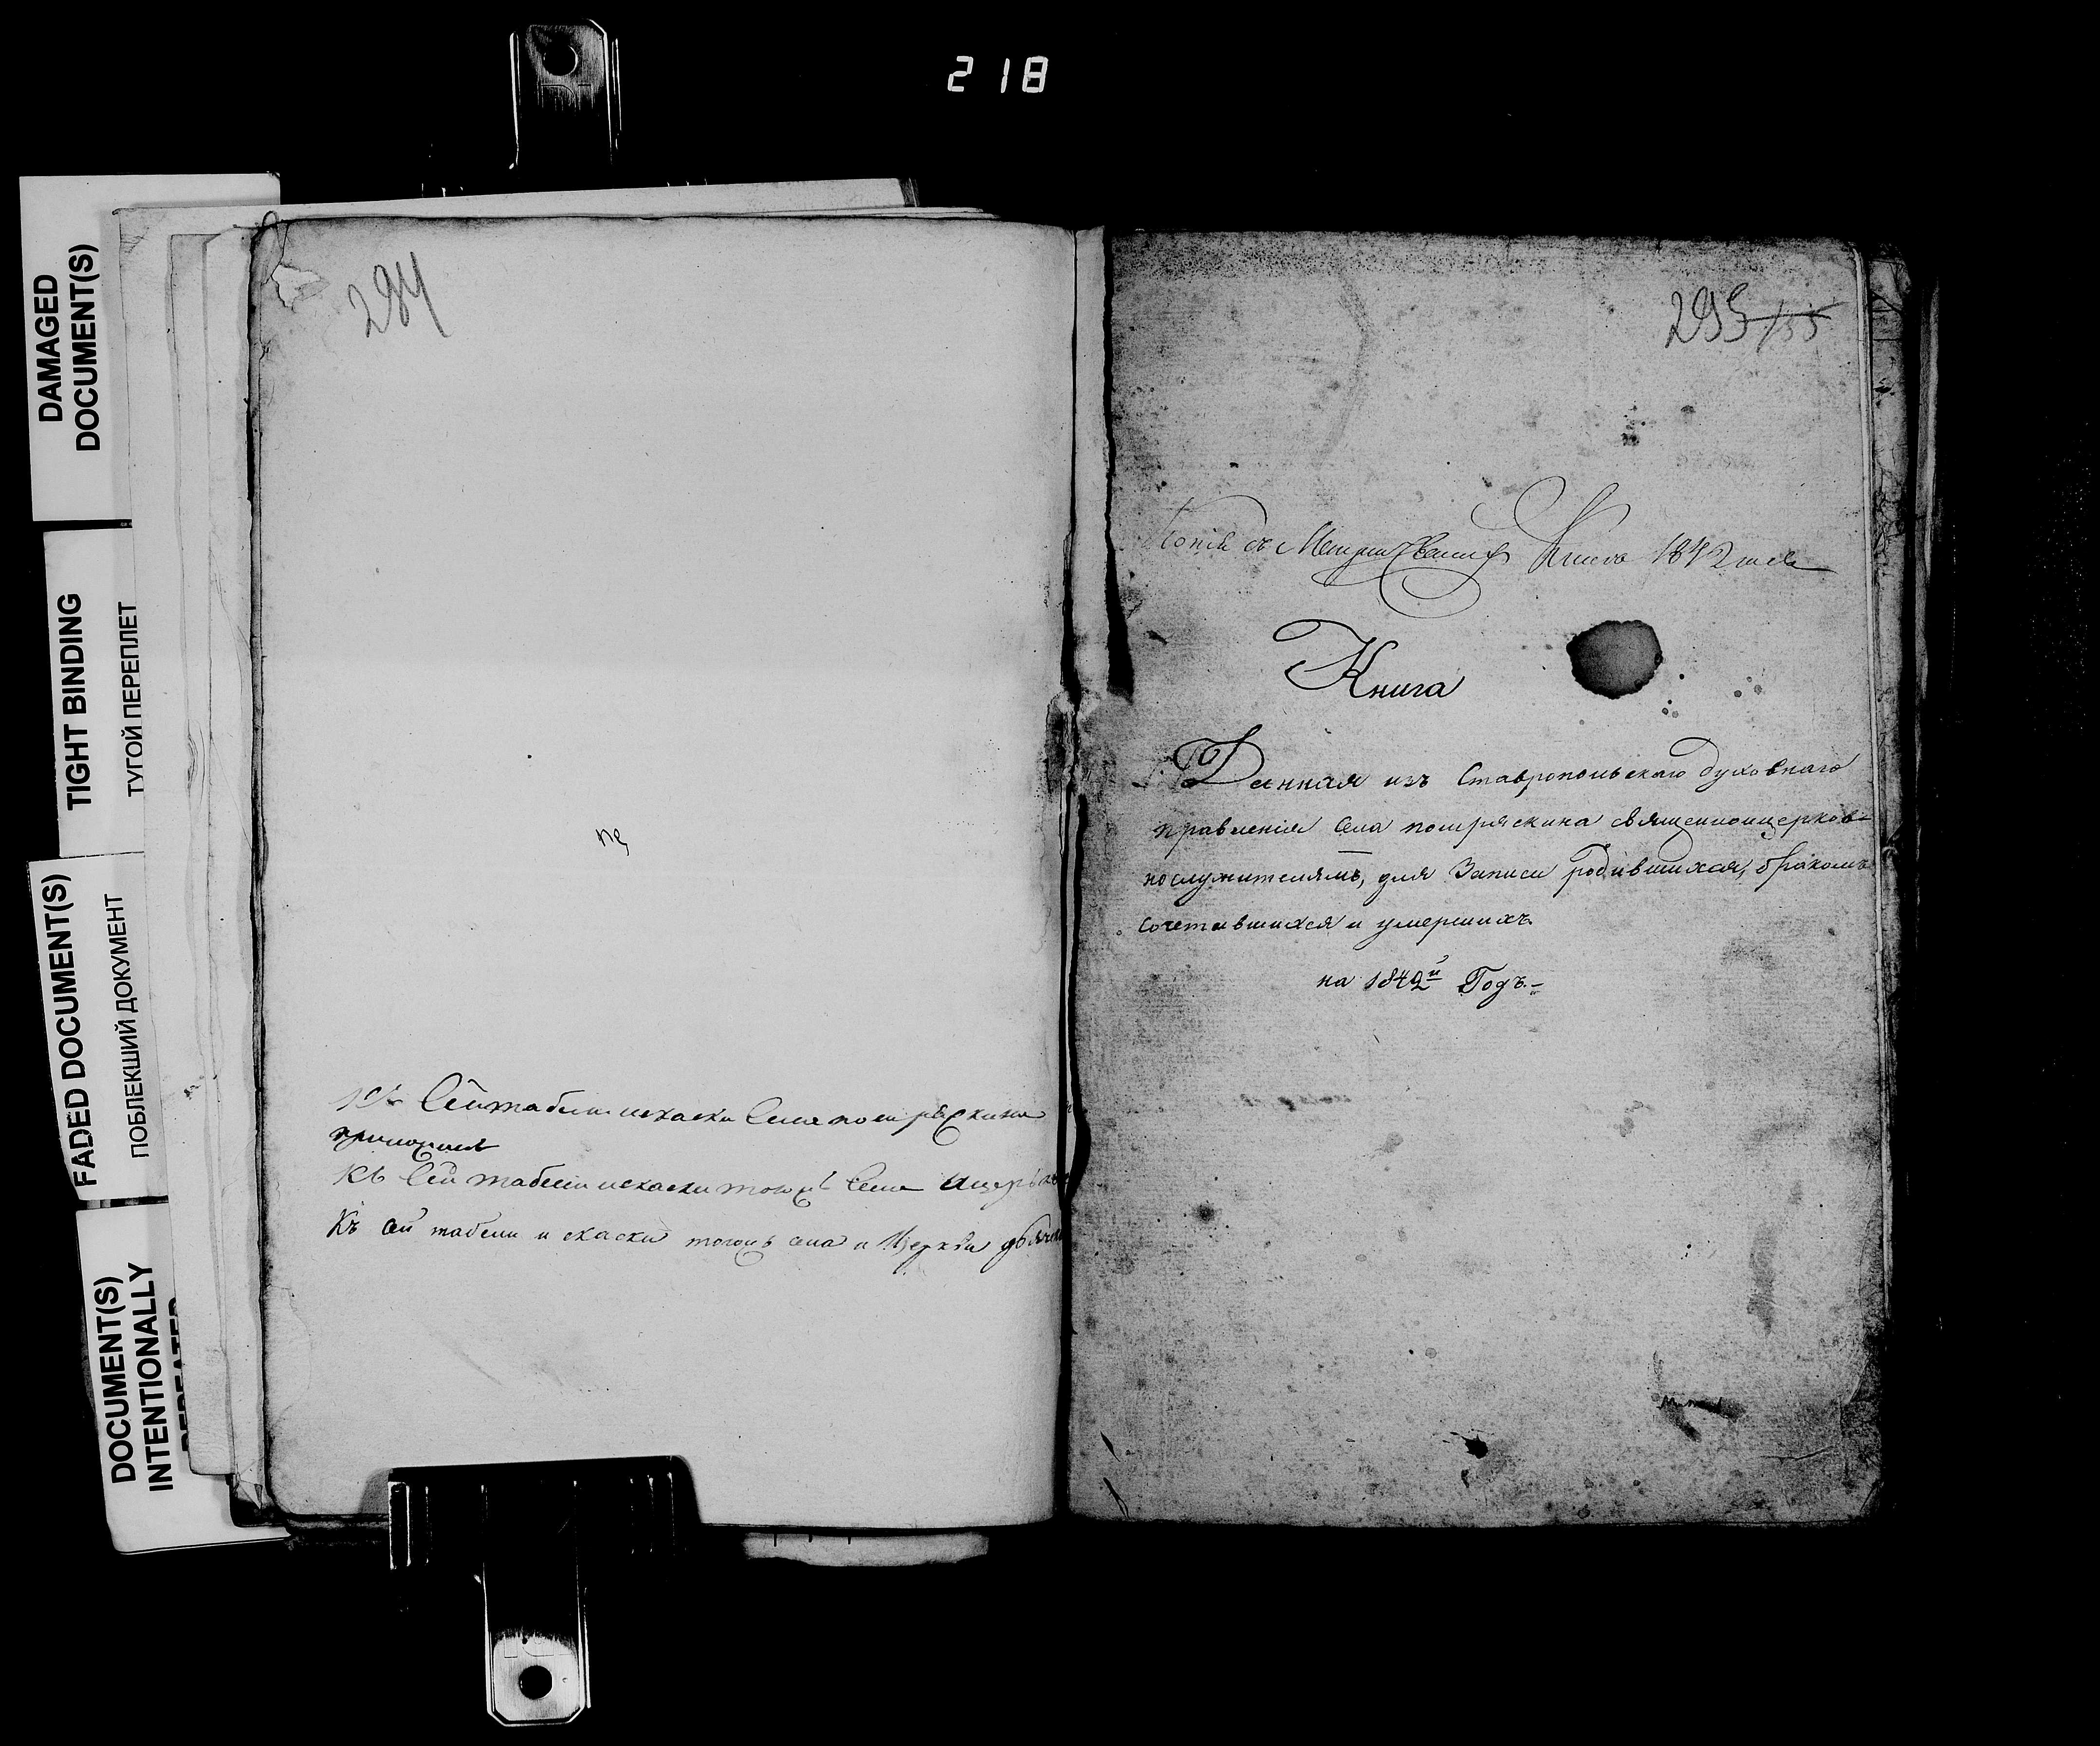 218
DAMAGED
DOCUMENT(S)
TIGHT BINDING
ТУГОЙ ПЕРЕПЛЕТ
FADED DOCUMENT(S)
ПОБЛЕКШИЙ ДОКУМЕНТ
DOCUMENT(S)
INTENTIONALLY
294
Сей табели и скаски Села потряскина
Къ Сей табели и скаски тогожъ Села
Къ сей табели и скаски тогожъ села и Церкви дьячекъ
295
Копія съ Метрическихъ Книгъ 1842 года
Книга
Данная изъ Ставропольскаго духовнаго
правленія села потряскина священноцерков-
нослужителямъ, для Записи родившихся, бракомъ
сочетавшихся и умершихъ
на 1842й Годъ.-